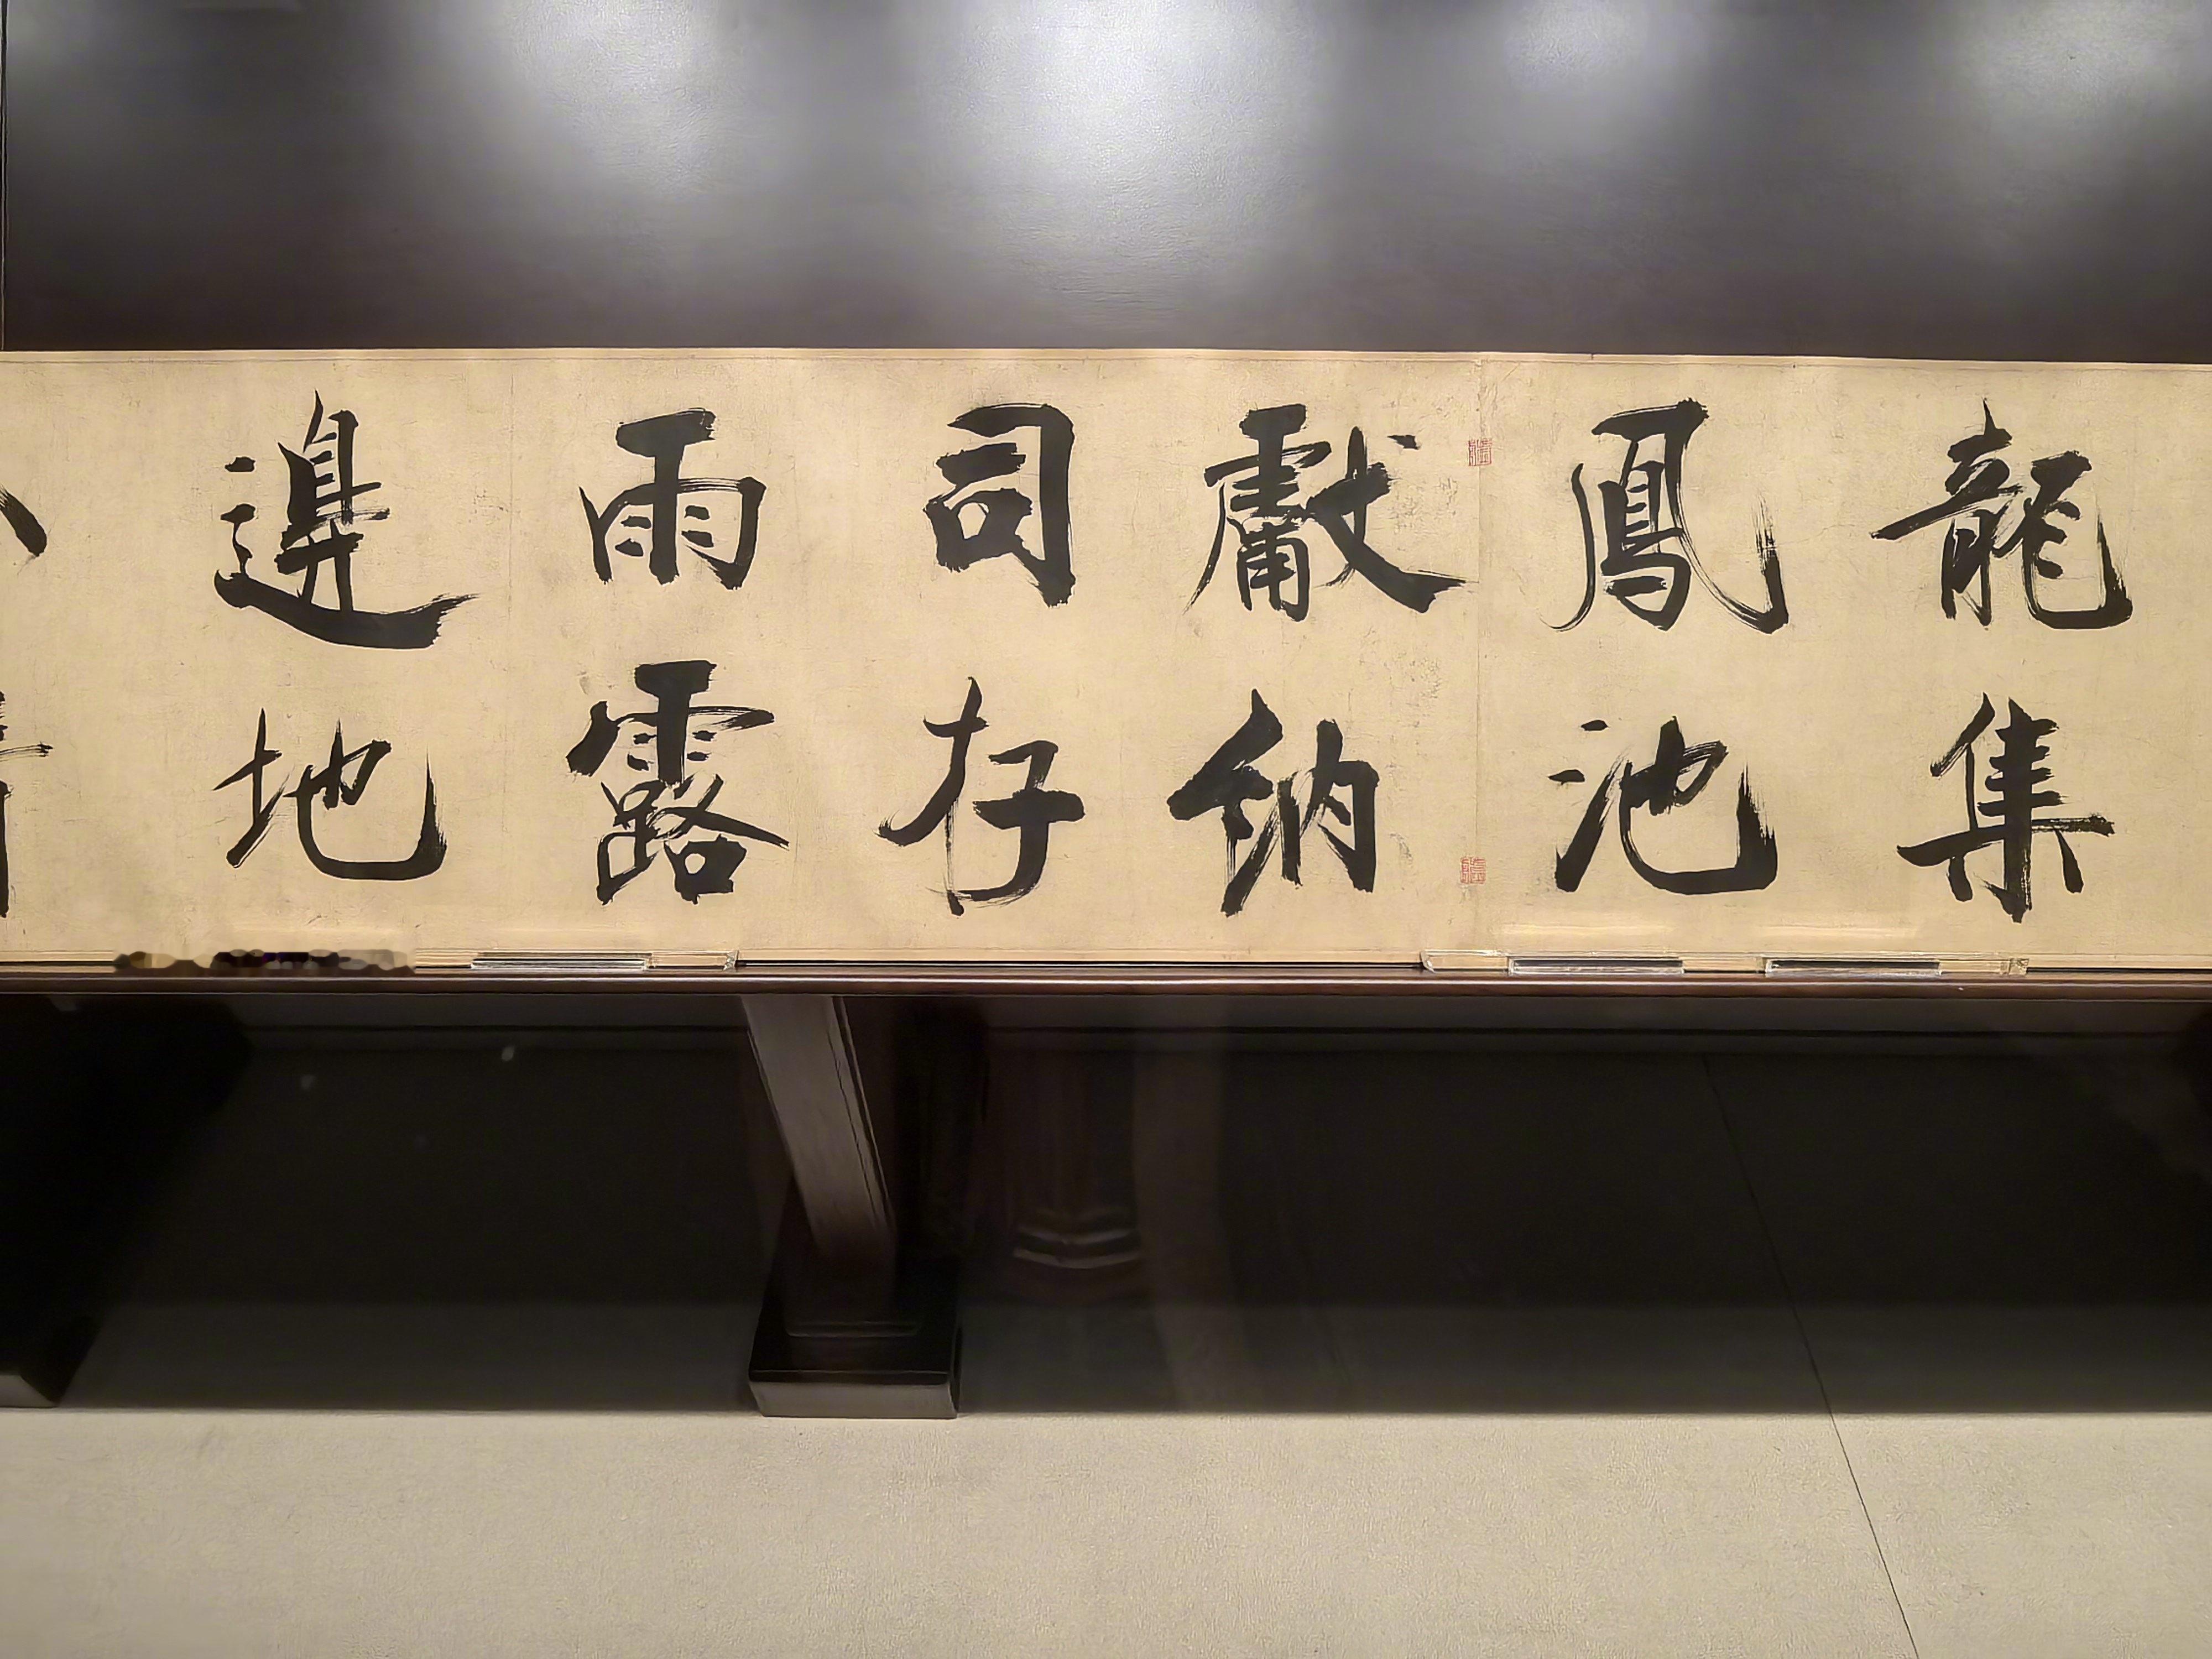 龍集
鳳池
獻納
司存
雨露
邊地